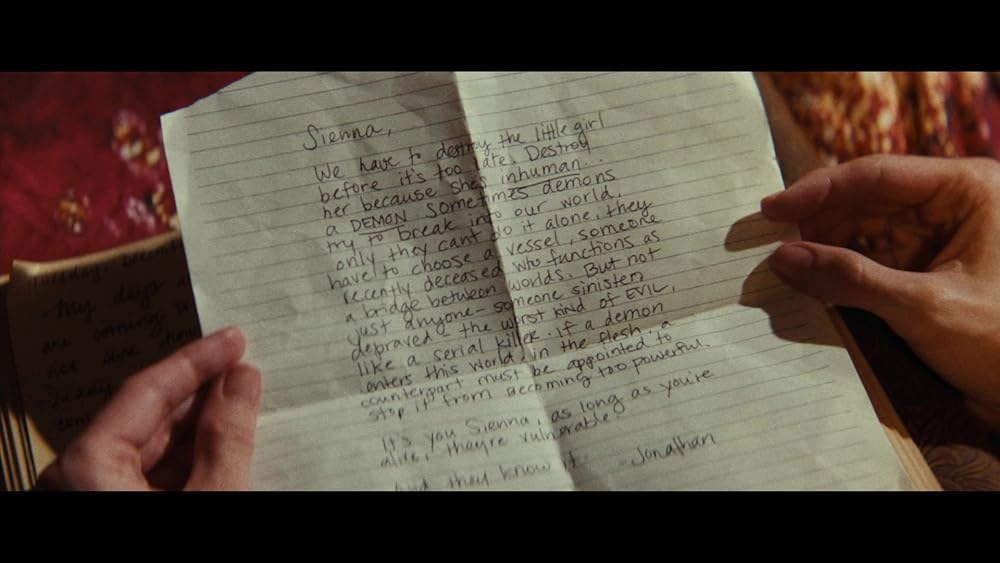 Sienna,
We have to destroy the little girl
before it's too late. Destroy
her because she's inhuman...
a DEMON sometimes demons
try to break into our world,
only they can't do it alone, they
have to choose a vessel, someone
recently deceased who functions as
a bridge between worlds. But not
just anyone - someone sinister,
depraved - the worst kind of EVIL,
like a serial killer. if a demon
enters this world, in the flesh - a
counterpart must be appointed to
stop it from becoming too powerful.
It's you Sienna, as long as you're
alive, they're vulnerable.
And they know it - Jonathan
my days a
are coming
not
ready